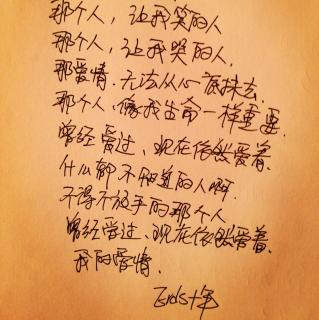 那个人，让我笑的人
那个人，让我哭的人.
那爱情.无法从心底抹去.
那个人.像我生命一样重要.
曾经爱过、现在依然爱着.
什么都不知道的人啊.
不得不放手的那个人
曾经爱过、现在依然爱着.
我的爱情.